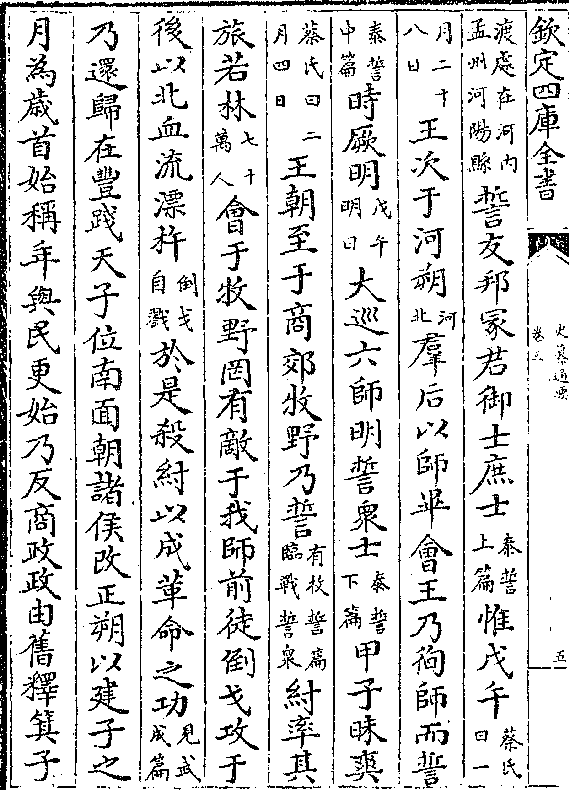 欽定四庫全書
史纂通要 卷三 五
渡處在河內孟州河陽縣誓友邦冢君御士庶士泰誓上篇惟戊午蔡氏曰一
月二十八日王次于河朔河北羣后以師畢會王乃徇師而誓
泰誓中篇時厥明戊午明日大巡六師明誓衆士泰誓下篇甲子昧爽
蔡氏曰二月四日王朝至于商郊牧野乃誓有牧誓篇臨戰誓衆紂率其
旅若林七十萬人會于牧野罔有敵于我師前徒倒戈攻于
後以北血流漂杵倒戈自戮於是殺紂以成革命之功見武成篇
乃還歸在豐踐天子位南面朝諸侯改正朔以建子之
月為歲首始稱年與民更始乃反商政政由舊釋箕子